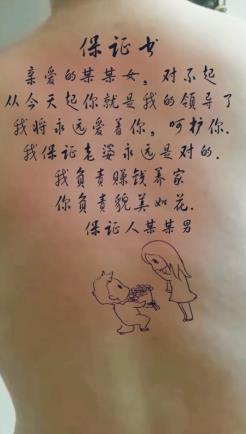 保证书
亲爱的某某女，对不起
从今天起你就是我的领导了
我将永远爱着你，呵护你.
我保证老婆永远是对的.
我负责赚钱养家
你负责貌美如花.
保证人某某男